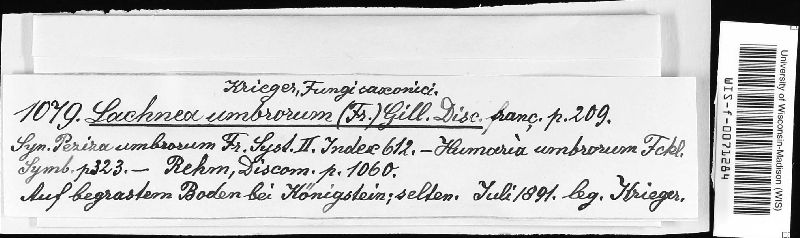 Krieger, Fungi saxonici.
1079. Lachnea umbrorum (Fr.) Gill. Disc. franç. p. 209.
Syn. Peziza umbrorum Fr. Syst. II. Index 612. — Humaria umbrorum Fckl.
Symb. p 323. — Rehm, Discom. p. 1060.
Auf begrastem Boden bei Königstein; selten. Juli 1891. leg. Krieger.
University of Wisconsin-Madison (WIS)
WIS-f-0071284